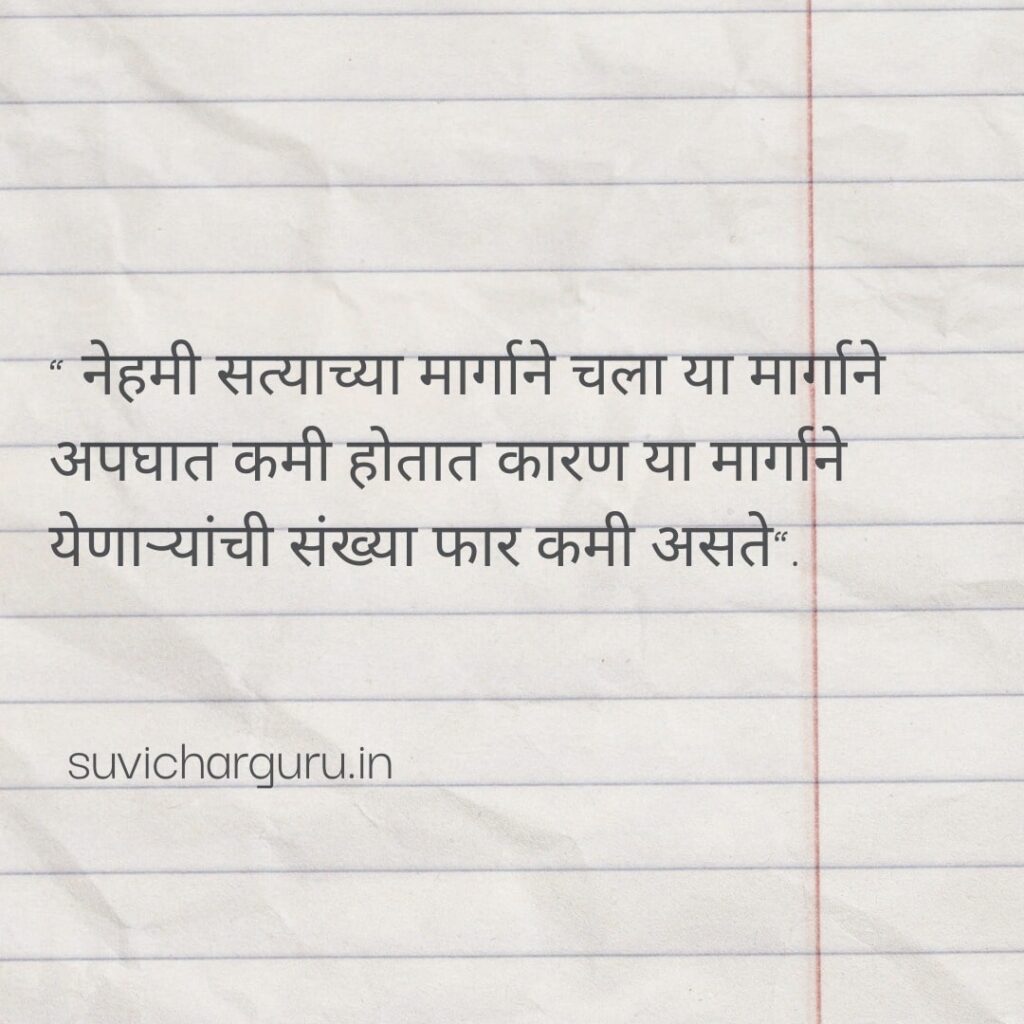 “ नेहमी सत्याच्या मार्गाने चला या मार्गाने
अपघात कमी होतात कारण या मार्गाने
येणाऱ्यांची संख्या फार कमी असते“.
suvicharguru.in